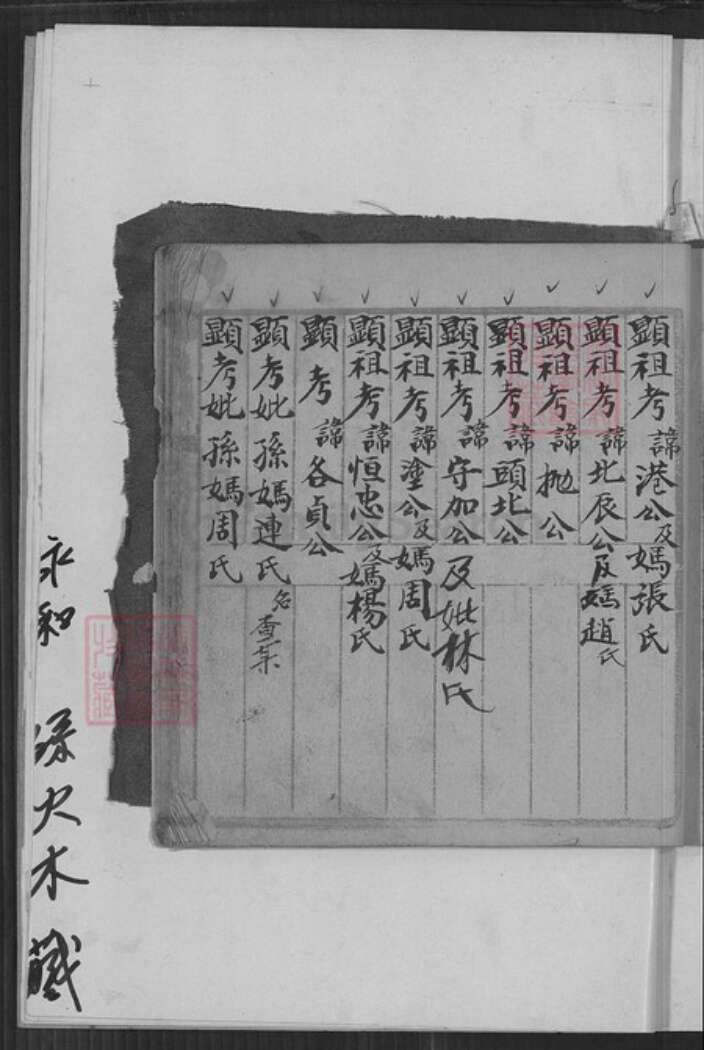 顯祖考諱港公及媽張氏
顯祖考諱北辰公及媽趙氏
顯祖考諱拋公
顯祖考諱頭北公
顯祖考諱守加公及妣林氏
顯祖考諱塗公及媽周氏
顯祖考諱恒忠公及媽楊氏
顯考諱各貞公
顯考妣孫媽連氏名查某
顯考妣孫媽周氏
永和 孫火木 藏